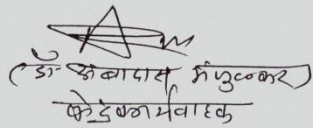 (डॉ. अंबादास मंगुळकर)
केंद्रकार्यवाहक